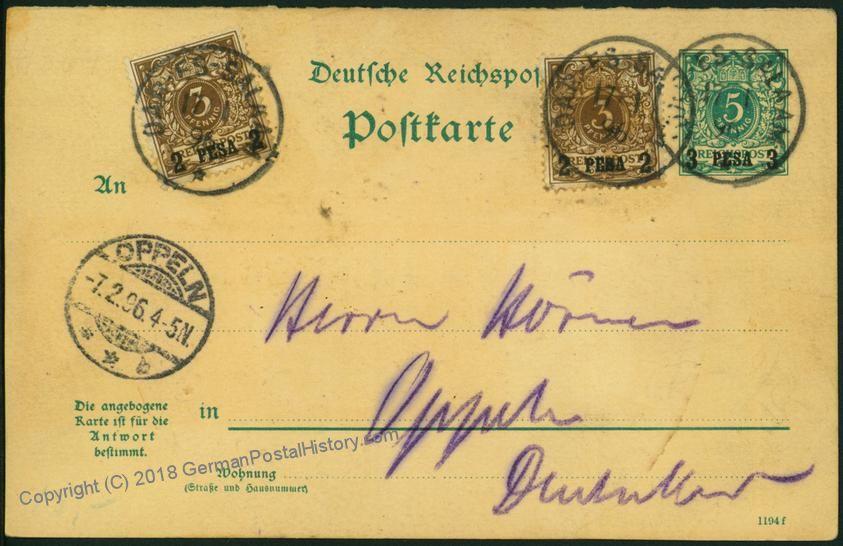 Deutsche Reichspos
Postkarte
3
PFENNIG
REICHSPOST
2 PESA 2
DAR-ES-SALAAM
17
2 PESA 2
5
PFENNIG
REICHSPOST
3 PESA 3
An
OPPELN
-7.2.96.4-5N.
Herrn Körner
Die angebogene
Karte ist für die
Antwort
bestimmt.
in Oppeln
Wohnung
(Straße und Hausnummer)
Deutschland
1194 f
Copyright (C) 2018 GermanPostalHistory.com